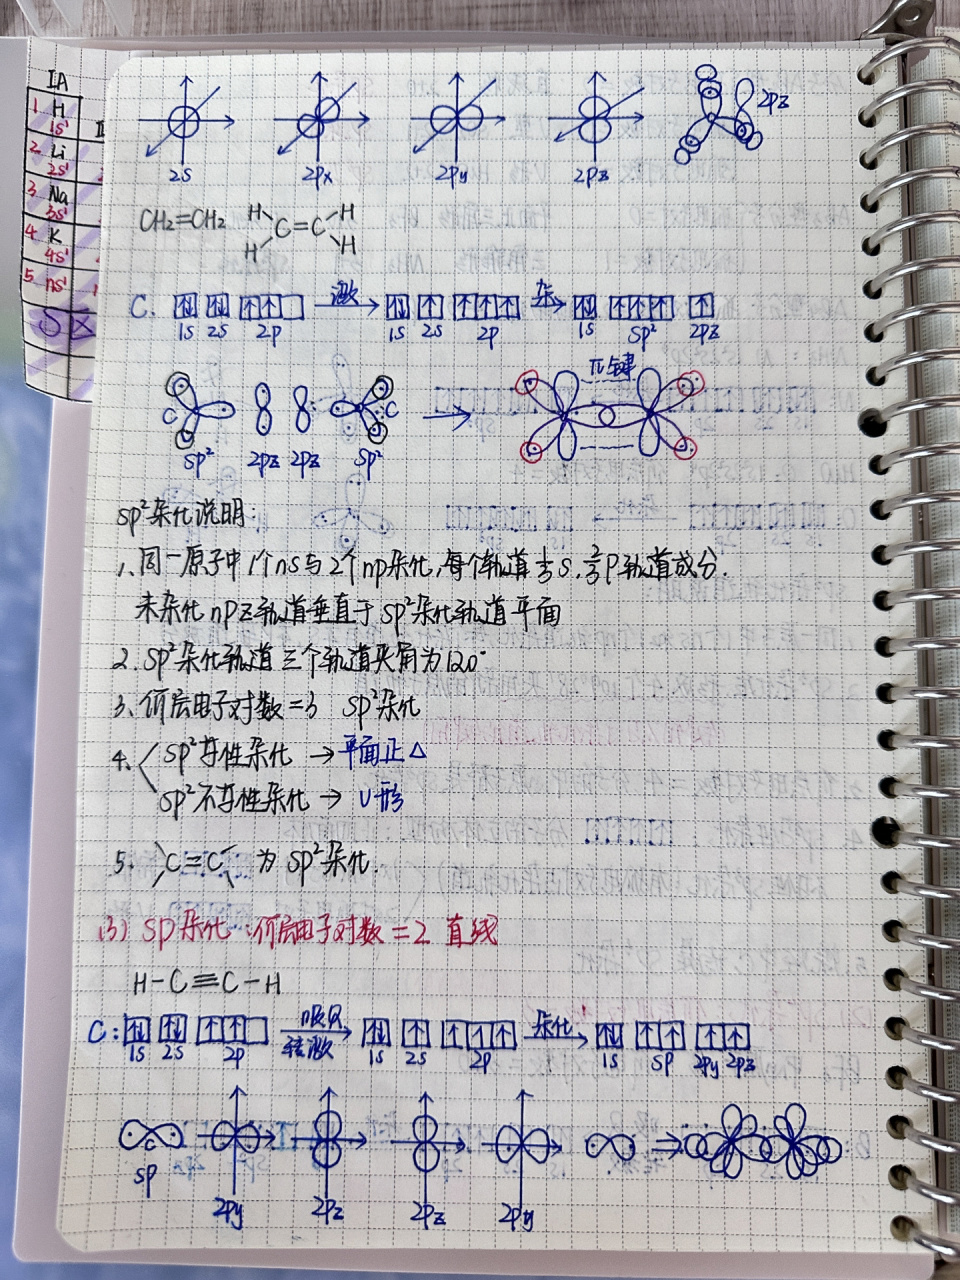 IA
1 H
1s¹
2 Li
2s¹
3 Na
3s¹
4 K
4s¹
5 ns¹
S区
2s 2px 2py 2pz 2pz
CH₂=CH₂ H H C=C H H
C: 激 杂
1s 2s 2p 1s 2s 2p 1s sp² 2pz
π键
C C
sp² 2pz 2pz sp²
sp²杂化说明:
1、同一原子中1个ns与2个np杂化,每个轨道⅓s,⅔p轨道成分.
未杂化npz轨道垂直于sp²杂化轨道平面
2. sp²杂化轨道三个轨道夹角为120°
3、价层电子对数=3 sp²杂化
4. sp²等性杂化 → 平面正△
sp²不等性杂化 → V形
5. C=C 为sp²杂化.
(3) sp杂化:价层电子对数=2 直线
H-C≡C-H
C: 吸收 杂化
激
1s 2s 2p 1s 2s 2p 1s sp 2py 2pz
C
sp 2py 2pz 2pz 2py